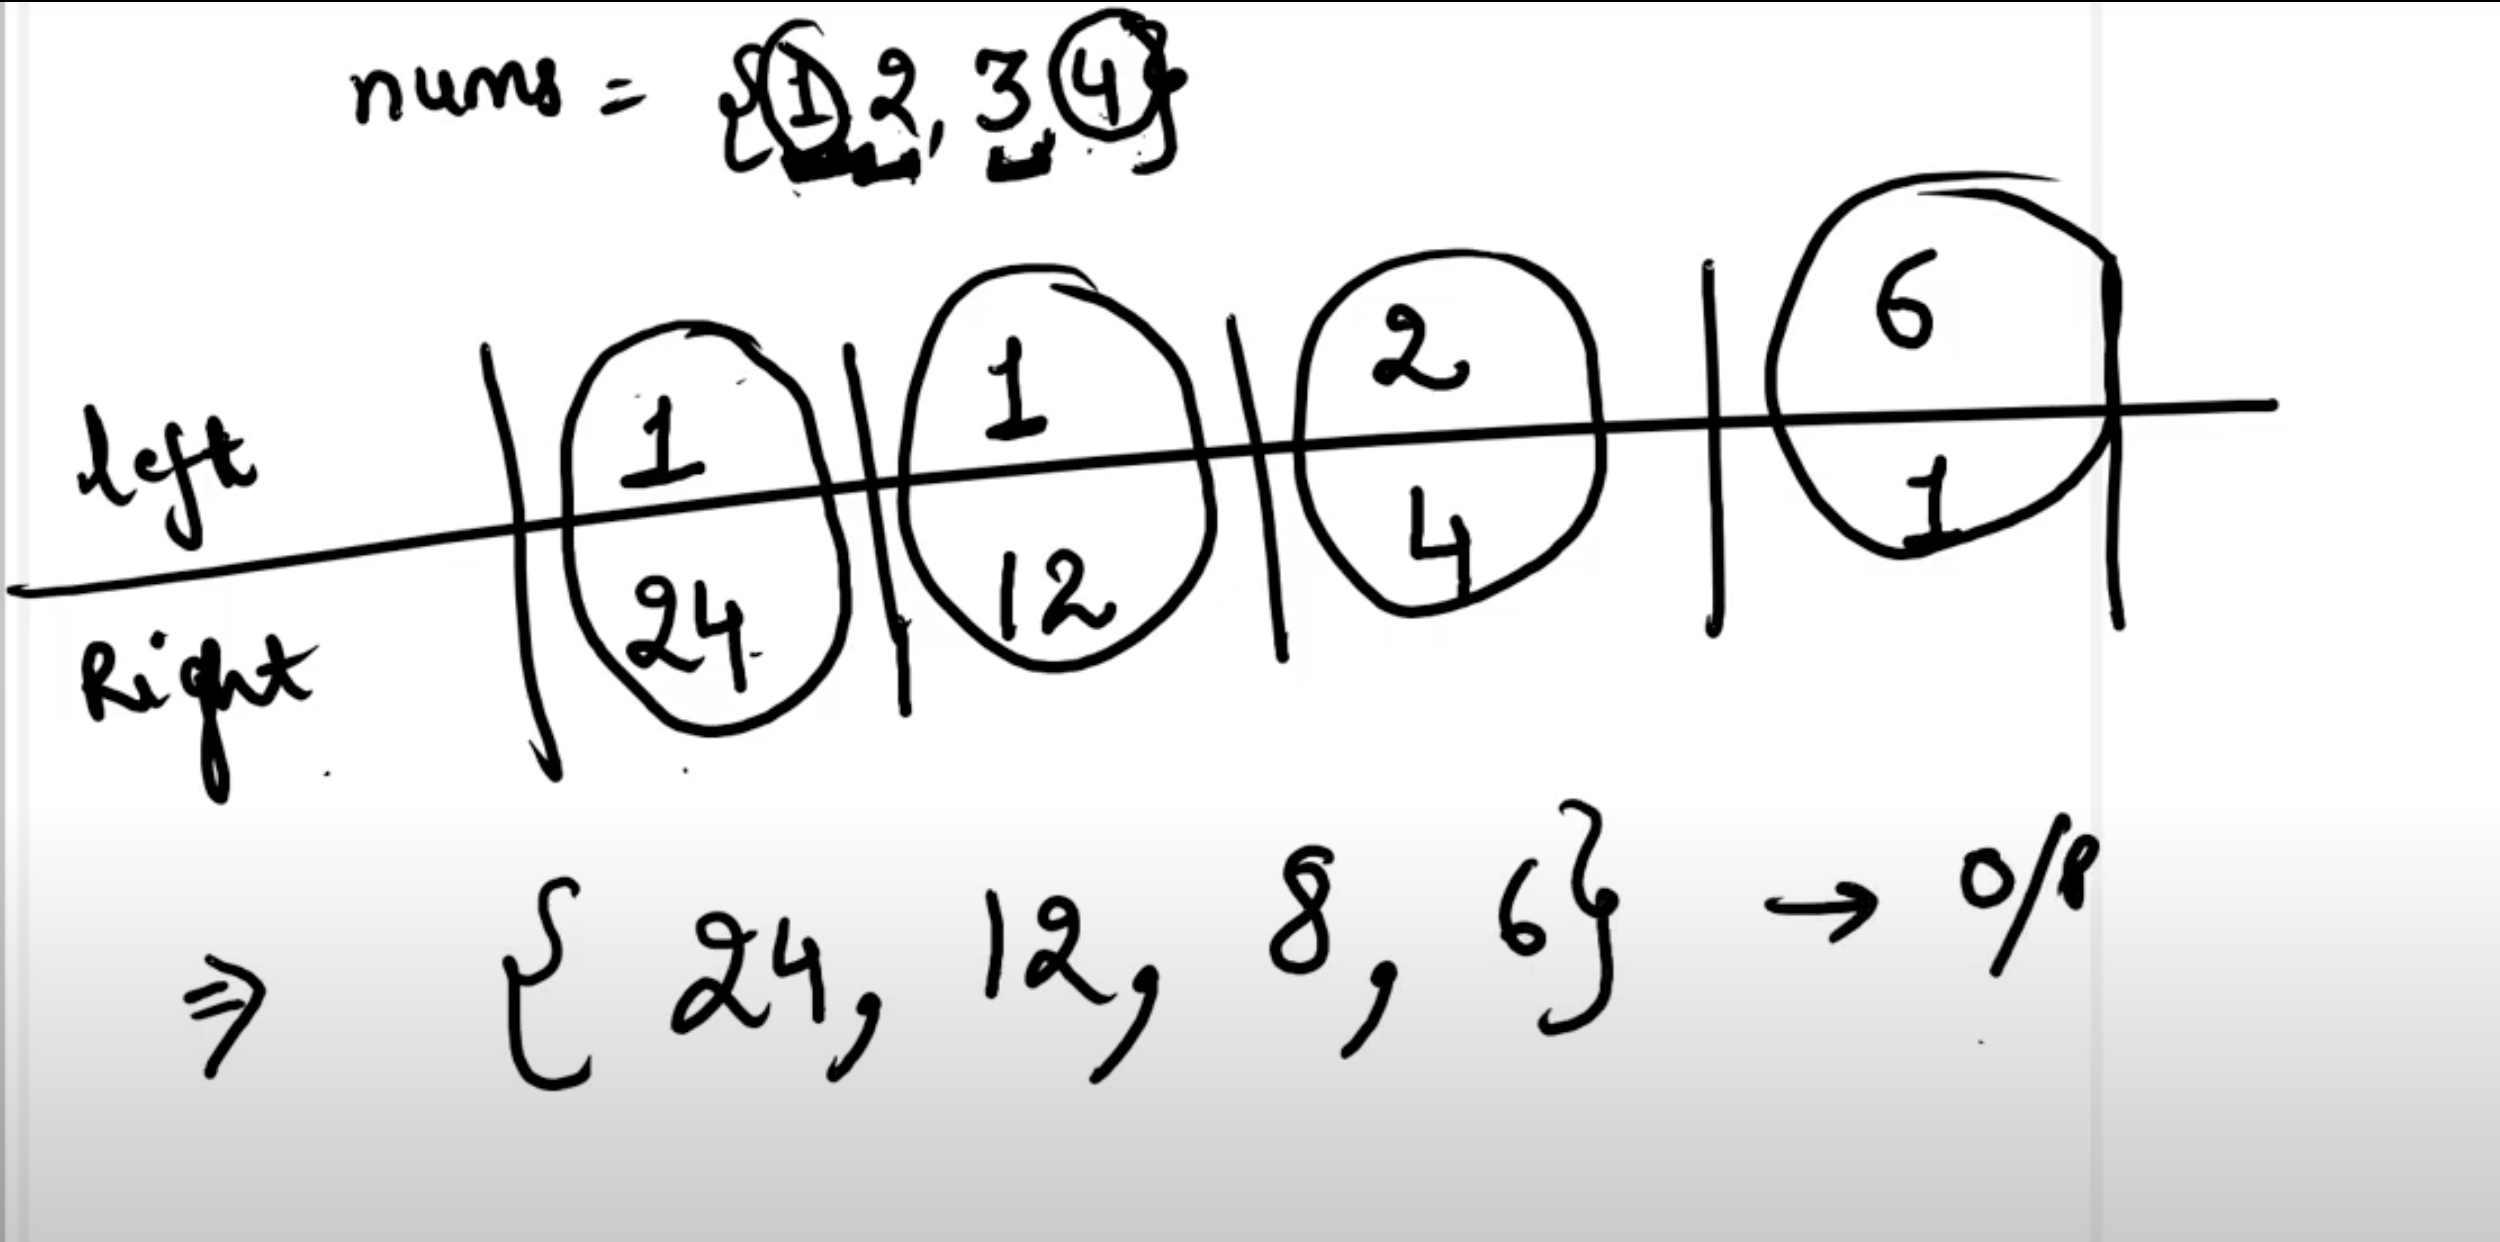 nums = {1 2, 3 4}
left 1 1 2 6
Right 24 12 4 1
⇒ { 24, 12, 8, 6} → O/P